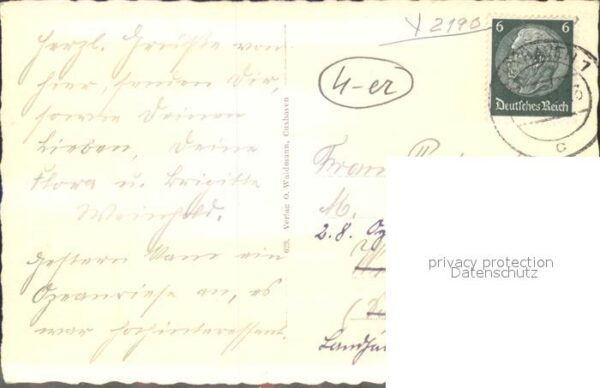 Herzl. Grüße von
hier, senden Dir,
sowie Deinen
Lieben, Deine
Flora u. Brigitte
Gestern kam ein
Ozeanriese an, es
war hochinteressant.
628. Verlag O. Waldmann, Cuxhaven
4-er
6 6
Deutsches Reich
1
c
M.
2.8.
privacy protection
Datenschutz